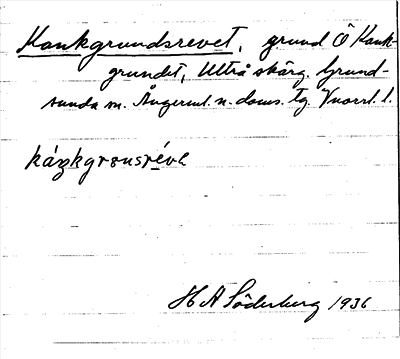 Kankgrundsrevet, grund Ö Kank-
grundet, Ultrå skärg. Grund-
sunda sn. Ångerml. n. doms. tg. Vnorrl. l.
káŋkgrɞnsrévɛ
H A Söderberg 1936